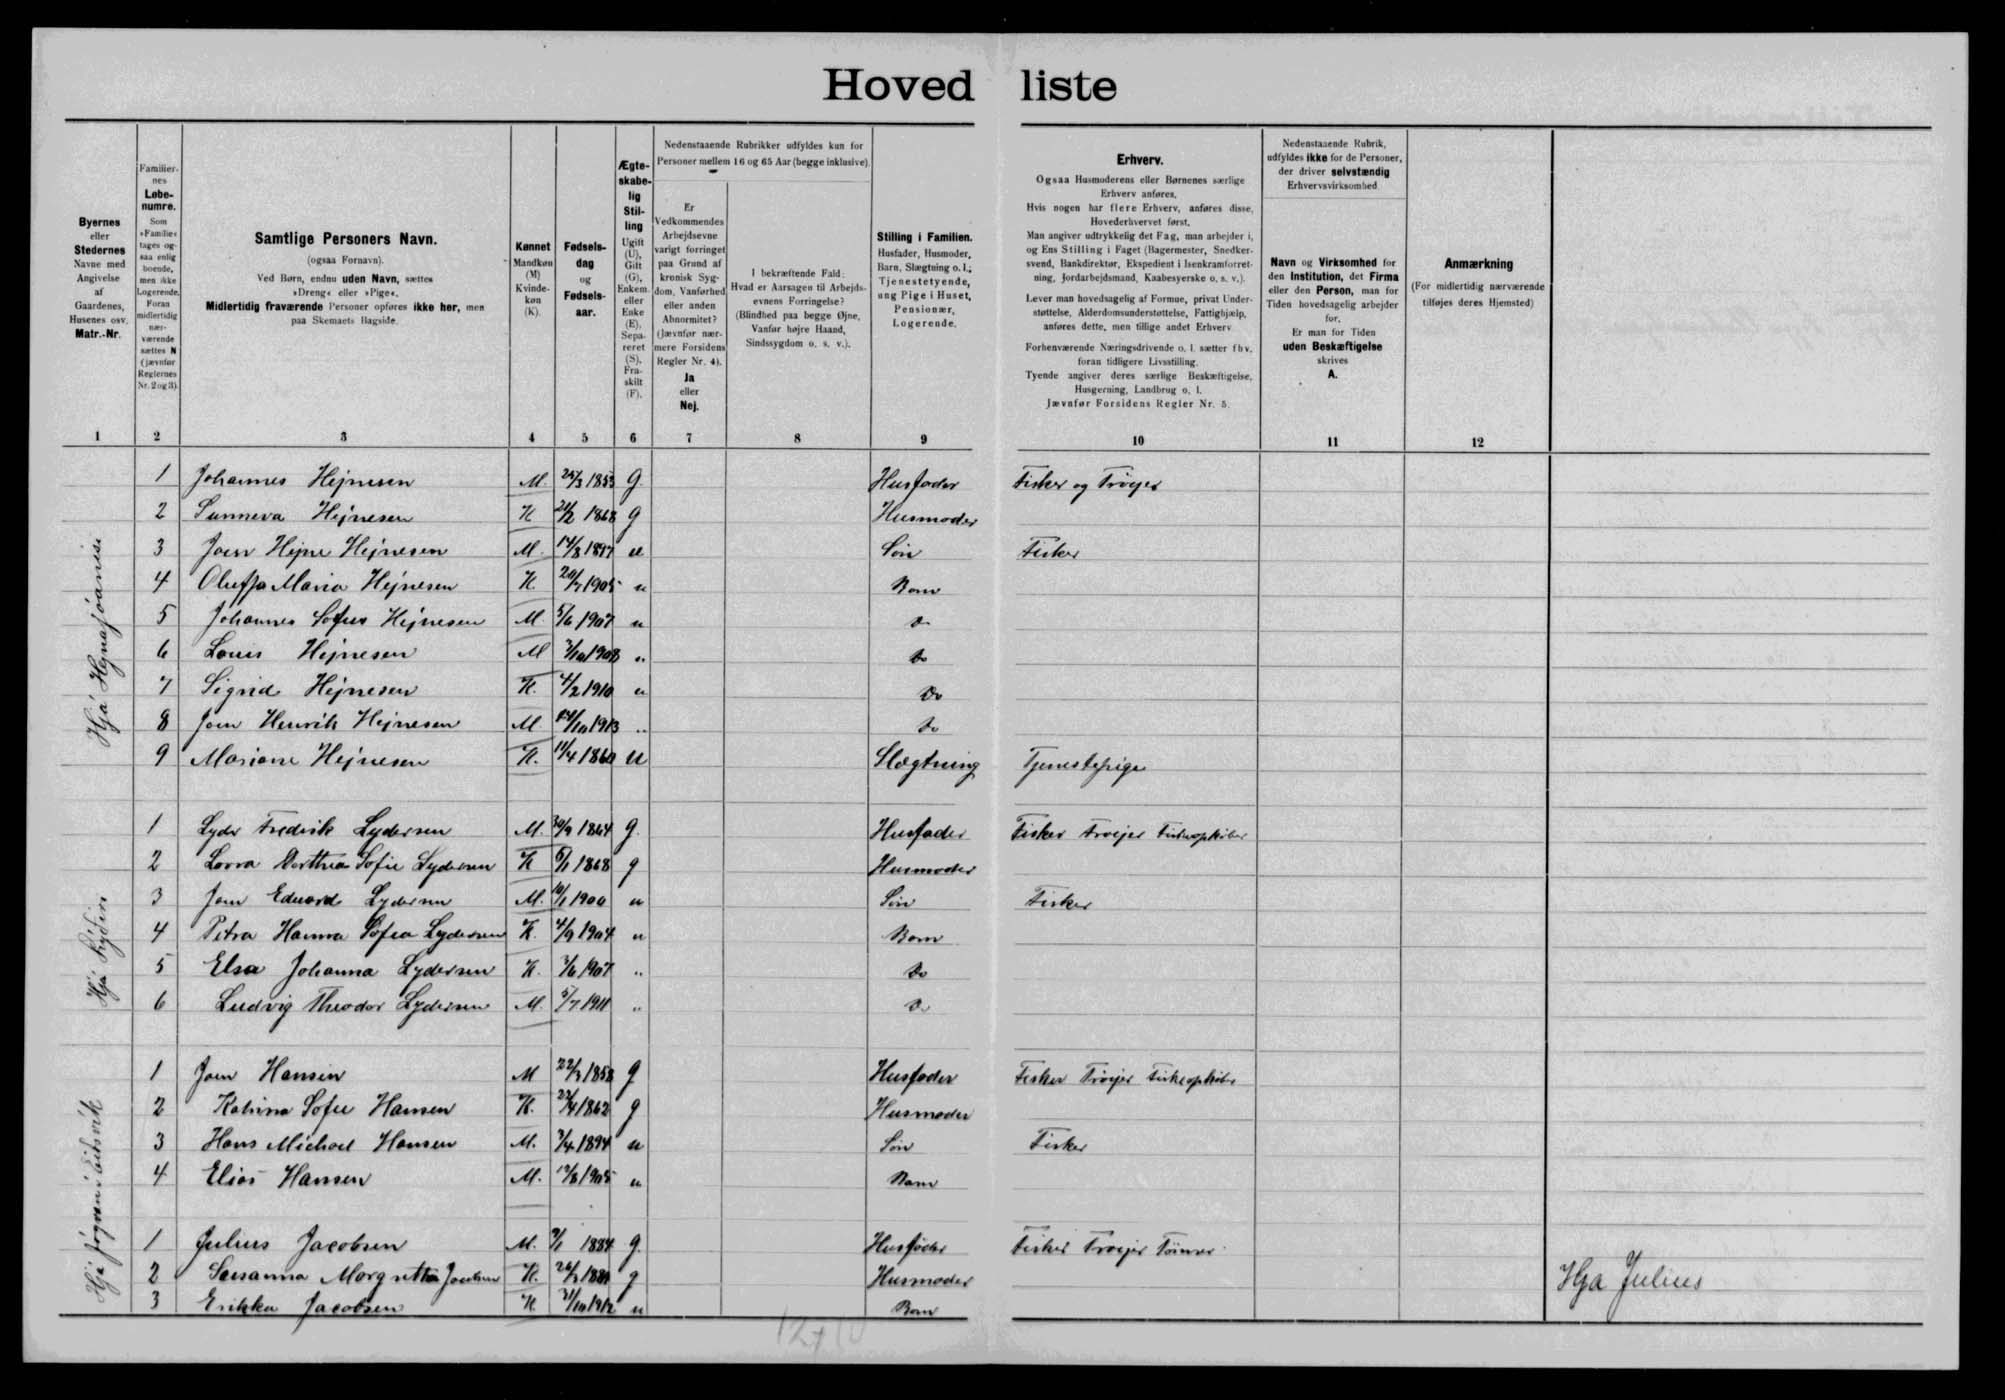 Hovedliste
Byernes eller Stedernes Navne med Angivelse af Gaardenes, Husenes osv. Matr.-Nr.
Familiernes Løbenumre. Som »Familie« tages ogsaa enlig boende, men ikke Logerende. Foran midlertidig nærværende sættes N (jævnfør Reglernes Nr. 2 og 3).
Samtlige Personers Navn.
(ogsaa Fornavn).
Ved Børn, endnu uden Navn, sættes »Dreng« eller »Pige«.
Midlertidig fraværende Personer opføres ikke her, men paa Skemaets Bagside.
Kønnet Mandkøn (M) Kvindekøn (K).
Fødselsdag og Fødselsaar.
Ægteskabelig Stilling Ugift (U), Gift (G), Enkem. eller Enke (E), Separeret (S), Fraskilt (F).
Nedenstaaende Rubrikker udfyldes kun for Personer mellem 16 og 65 Aar (begge inklusive).
Er Vedkommendes Arbejdsevne varigt forringet paa Grund af kronisk Sygdom, Vanførhed eller anden Abnormitet? (Jævnfør nærmere Forsidens Regler Nr. 4). Ja eller Nej.
I bekræftende Fald: Hvad er Aarsagen til Arbejdsevnens Forringelse? (Blindhed paa begge Øjne, Vanfør højre Haand, Sindssygdom o. s. v.).
Stilling i Familien.
Husfader, Husmoder, Barn, Slægtning o. l.; Tjenestetyende, ung Pige i Huset, Pensionær, Logerende.
Erhverv.
Ogsaa Husmoderens eller Børnenes særlige Erhverv anføres.
Hvis nogen har flere Erhverv, anføres disse, Hovederhvervet først.
Man angiver udtrykkelig det Fag, man arbejder i, og Ens Stilling i Faget (Bagermester, Snedkersvend, Bankdirektør, Ekspedient i Isenkramforretning, Jordarbejdsmand, Kaabesyerske o. s. v.).
Lever man hovedsagelig af Formue, privat Understøttelse, Alderdomsunderstøttelse, Fattighjælp, anføres dette, men tillige andet Erhverv
Forhenværende Næringsdrivende o. l. sætter fhv. foran tidligere Livsstilling.
Tyende angiver deres særlige Beskæftigelse, Husgerning, Landbrug o. l.
Jævnfør Forsidens Regler Nr. 5.
Nedenstaaende Rubrik, udfyldes ikke for de Personer, der driver selvstændig Erhvervsvirksomhed
Navn og Virksomhed for den Institution, det Firma eller den Person, man for Tiden hovedsagelig arbejder for.
Er man for Tiden uden Beskæftigelse skrives A.
Anmærkning
(For midlertidig nærværende tilføjes deres Hjemsted)
1 2 3 4 5 6 7 8 9 10 11 12
1 Johannes Hejnesen M. 25/3 1853 g. Husfader Fisker og Trøjer
2 Sunneva Hejnesen K 21/2 1868 g Husmoder
3 Joen Hejne Hejnesen M. 14/8 1897 u Søn Fisker
4 Oluffa Maria Hejnesen K. 20/7 1905 u Barn
5 Johannes Sofus Hejnesen M. 5/6 1907 u Do
6 Louis Hejnesen M 3/10 1908 " Do
7 Sigrid Hejnesen K. 4/2 1910 u Do
8 Joen Henrik Hejnesen M 14/10 1913 " Do
9 Mariane Hejnesen K. 11/4 1860 U Slægtning Tjenestepige
1 Lyder Fredrik Lydersen M. 30/9 1864 g. Husfader Fisker Trøjer Fiskeopkøber
2 Dorthea Sofie Lydersen K 5/1 1868 g Husmoder
3 Joen Edvard Lydersen M. 10/1 1900 u Søn Fisker
4 Petra Hanna Sofia Lydersen K. 4/9 1904 u Barn
5 Elsa Johanna Lydersen K. 3/6 1907 " Do
6 Ludvig Theodor Lydersen M. 5/7 1911 " Do
1 Joen Hansen M 22/3 1858 g Husfader Fisker Trøjer Fiskeopkøber
2 Katrina Sofie Hansen K. 22/4 1862 g Husmoder
3 Hans Michael Hansen M. 3/4 1894 u Søn Fisker
4 Elias Hansen M. 12/8 1905 u Barn
1 Julius Jacobsen M. 9/1 1884 g. Husfader Fisker Trøjer Tømrer
2 Susanna Margretha K. g Husmoder Hja Julius
3 Erikka Jacobsen K 31/10 1912 u Barn